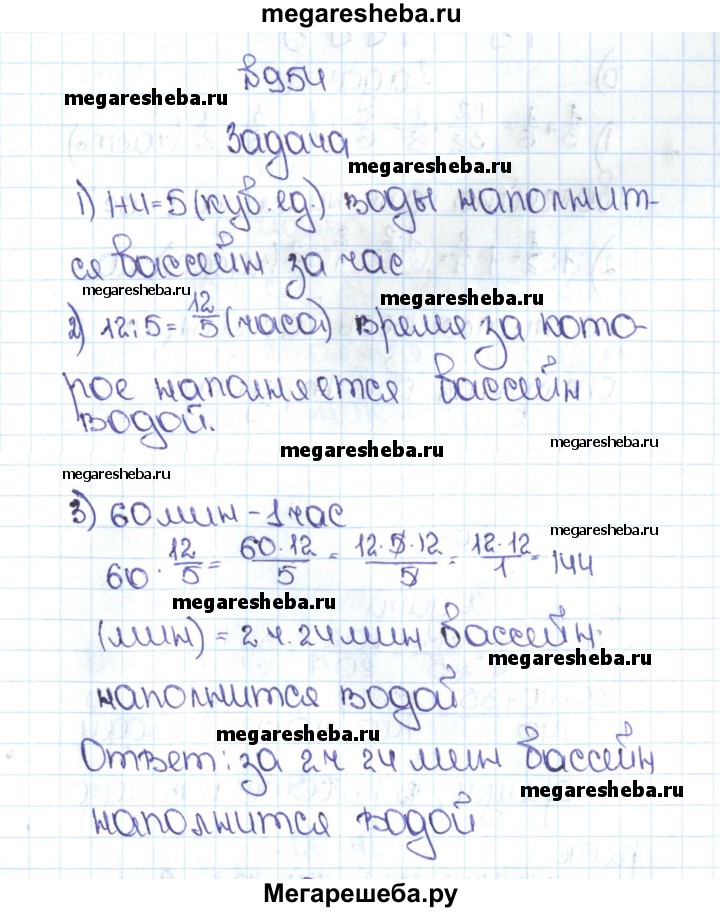 megaresheba.ru
№954
megaresheba.ru
Задача
megaresheba.ru
1) 1+4=5 (куб. ед.) воды наполнит-
ся бассейн за час
megaresheba.ru
megaresheba.ru
2) 12:5= 12/5 (часа) время за кото-
рое наполняется бассейн
водой.
megaresheba.ru
megaresheba.ru
megaresheba.ru
3) 60 мин - 1 час
megaresheba.ru
60 · 12/5 = 60·12/5 = 12·5·12/5 = 12·12/1 = 144
megaresheba.ru
(мин) = 2 ч. 24 мин бассейн
megaresheba.ru
наполнится водой
megaresheba.ru
Ответ: за 2ч 24 мин бассейн
megaresheba.ru
наполнится водой
Мегарешеба.ру